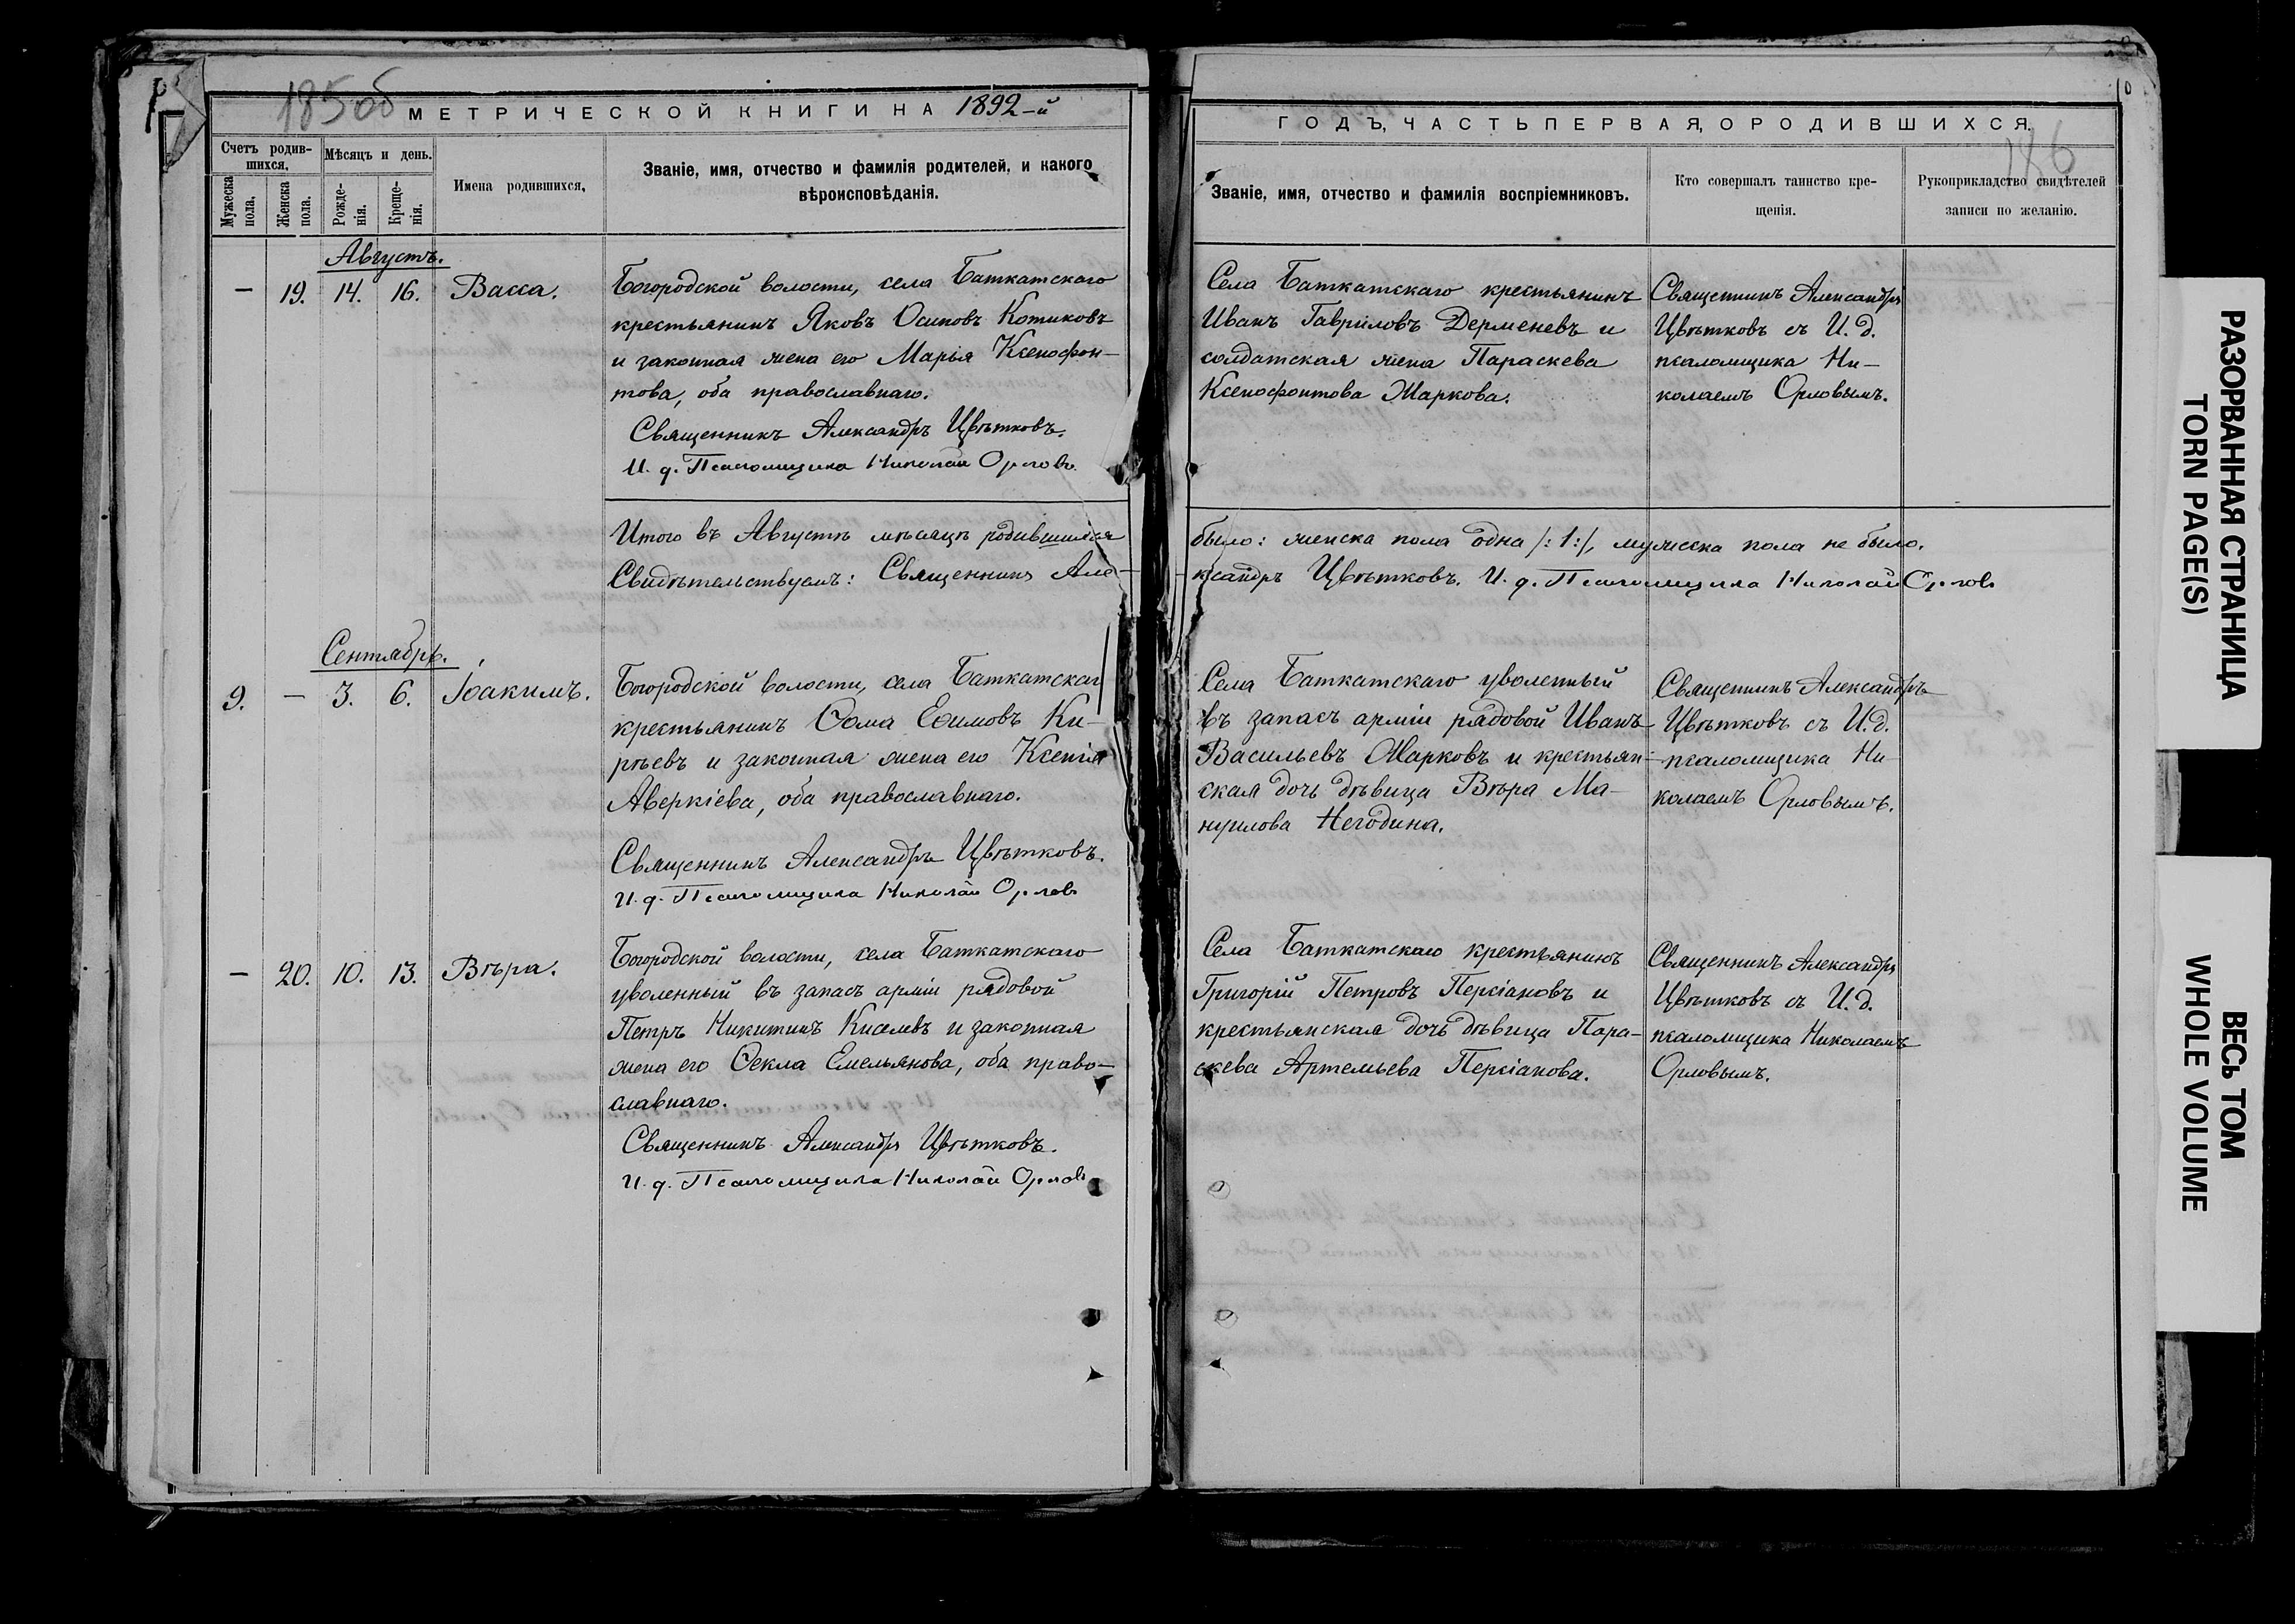 185об
МЕТРИЧЕСКОЙ КНИГИ НА 1892-й
Счетъ родив-
шихся.
Мѣсяцъ и день.
Мужеска пола.
Женска пола.
Рожде-
нія.
Креще-
нія.
Имена родившихся.
Званіе, имя, отчество и фамилія родителей, и какого
вѣроисповѣданія.
Августъ.
— 19. 14. 16. Васса.
Богородской волости, села Баткатскаго
крестьянинъ Яковъ Осиповъ Котиковъ
и законная жена его Марія Ксенофон-
това, оба православнаго.
Священникъ Александръ Цвѣтковъ.
И. д. Псаломщика Николай Орловъ
Итого въ Августѣ мѣсяцѣ родившихся
Свидѣтельствуемъ: Священникъ Але-
Сентябрь.
9. — 3. 6. Іоакимъ.
Богородской волости, села Баткатскаг
крестьянинъ Ѳома Ефимовъ Ки-
рѣевъ и законная жена его Ксенія
Аверкіева, оба православнаго.
Священникъ Александръ Цвѣтковъ.
И. д. Псаломщика Николай Орловъ
— 20. 10. 13. Вѣра.
Богородской волости, села Баткатскаго
уволенный въ запасъ арміи рядовой
Петръ Никитинъ Киселевъ и законная
жена его Ѳекла Емельянова, оба право-
славнаго.
Священникъ Александръ Цвѣтковъ.
И. д. Псаломщика Николай Орловъ
ГОДЪ, ЧАСТЬ ПЕРВАЯ, О РОДИВШИХСЯ.
186
Званіе, имя, отчество и фамилія воспріемниковъ.
Кто совершалъ таинство кре-
щенія.
Рукоприкладство свидѣтелей
записи по желанію.
Села Баткатскаго крестьянинъ
Иванъ Гавриловъ Дерменевъ и
солдатская жена Параскева
Ксенофонтова Маркова.
Священникъ Александръ
Цвѣтковъ съ И. д.
псаломщика Ни-
колаемъ Орловымъ.
было: женска пола одна /:1:/, мужеска пола не было.
ксандръ Цвѣтковъ. И. д. Псаломщика Николай Орловъ
Села Баткатскаго уволенный
въ запасъ арміи рядовой Иванъ
Васильевъ Марковъ и крестьян-
ская дочь дѣвица Вѣра Ма-
нуилова Негодина.
Священникъ Александръ
Цвѣтковъ съ И. д.
псаломщика Ни-
колаемъ Орловымъ.
Села Баткатскаго крестьянинъ
Григорій Петровъ Персіановъ и
крестьянская дочь дѣвица Пара-
скева Артемьева Персіанова.
Священникъ Александръ
Цвѣтковъ съ И. д.
псаломщика Николаемъ
Орловымъ.
РАЗОРВАННАЯ СТРАНИЦА
TORN PAGE(S)
ВЕСЬ ТОМ
WHOLE VOLUME